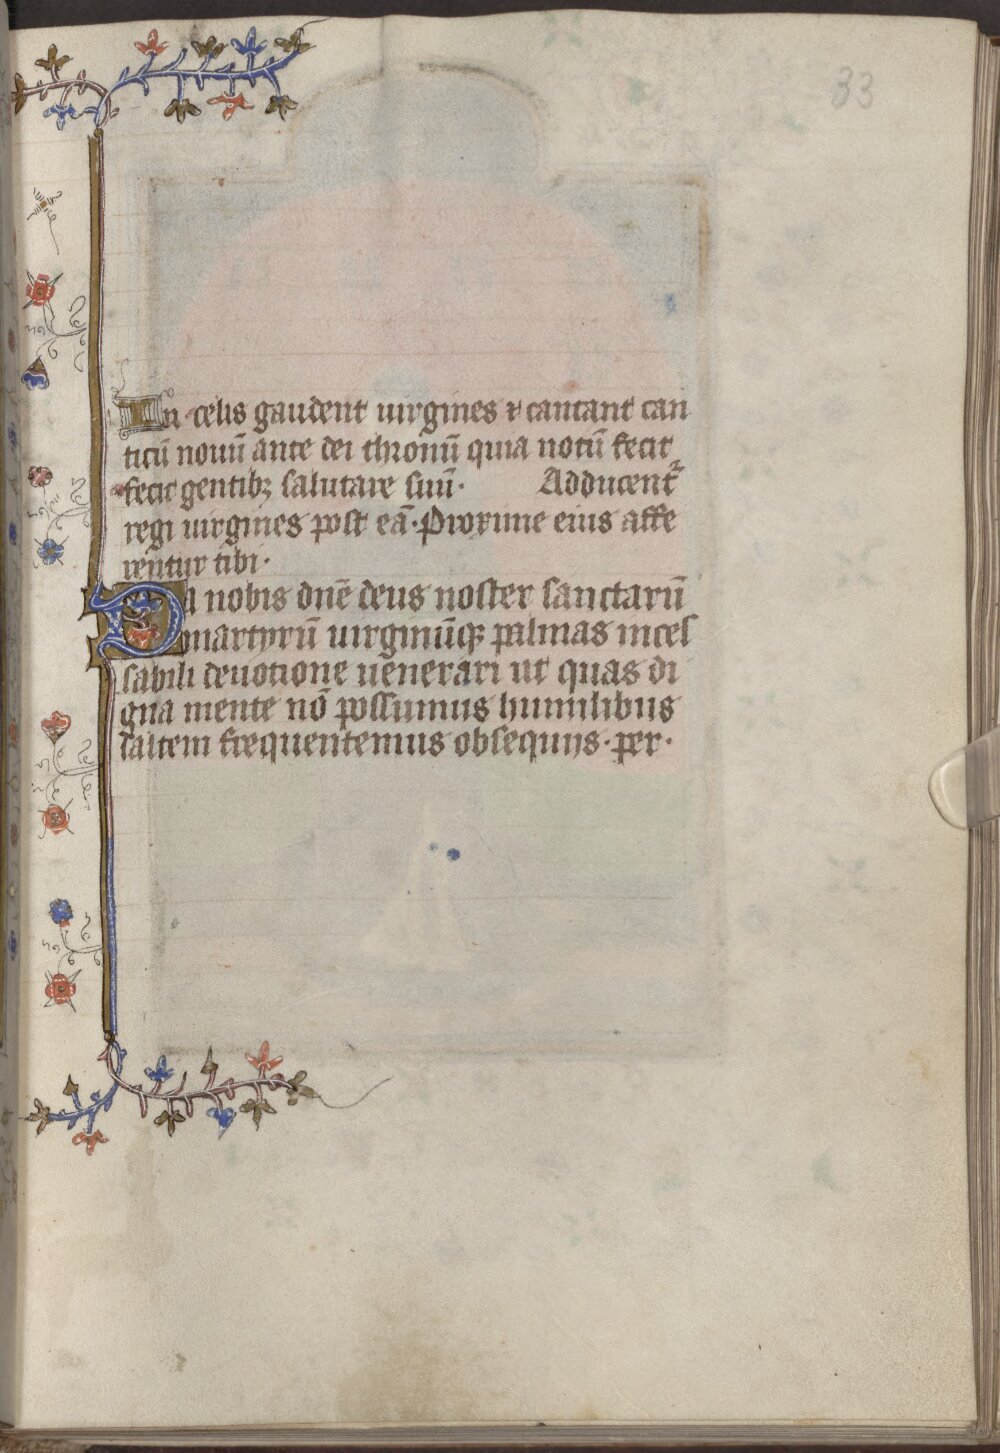 33
In celis gaudent uirgines ⁊ cantant can
ticū nouū ante dei thronū quia notū fecit
fecit gentibꝫ salutare suū · Adducent᷑
regi uirgines post eā · Proxime eius affe
rentur tibi ·
Da nobis dn̄e deus noster sanctarū
martyrū uirginūqꝫ palmas inces
sabili deuotione uenerari ut quas di
gna mente nō possumus humilibus
saltem frequentemus obsequijs · per ·